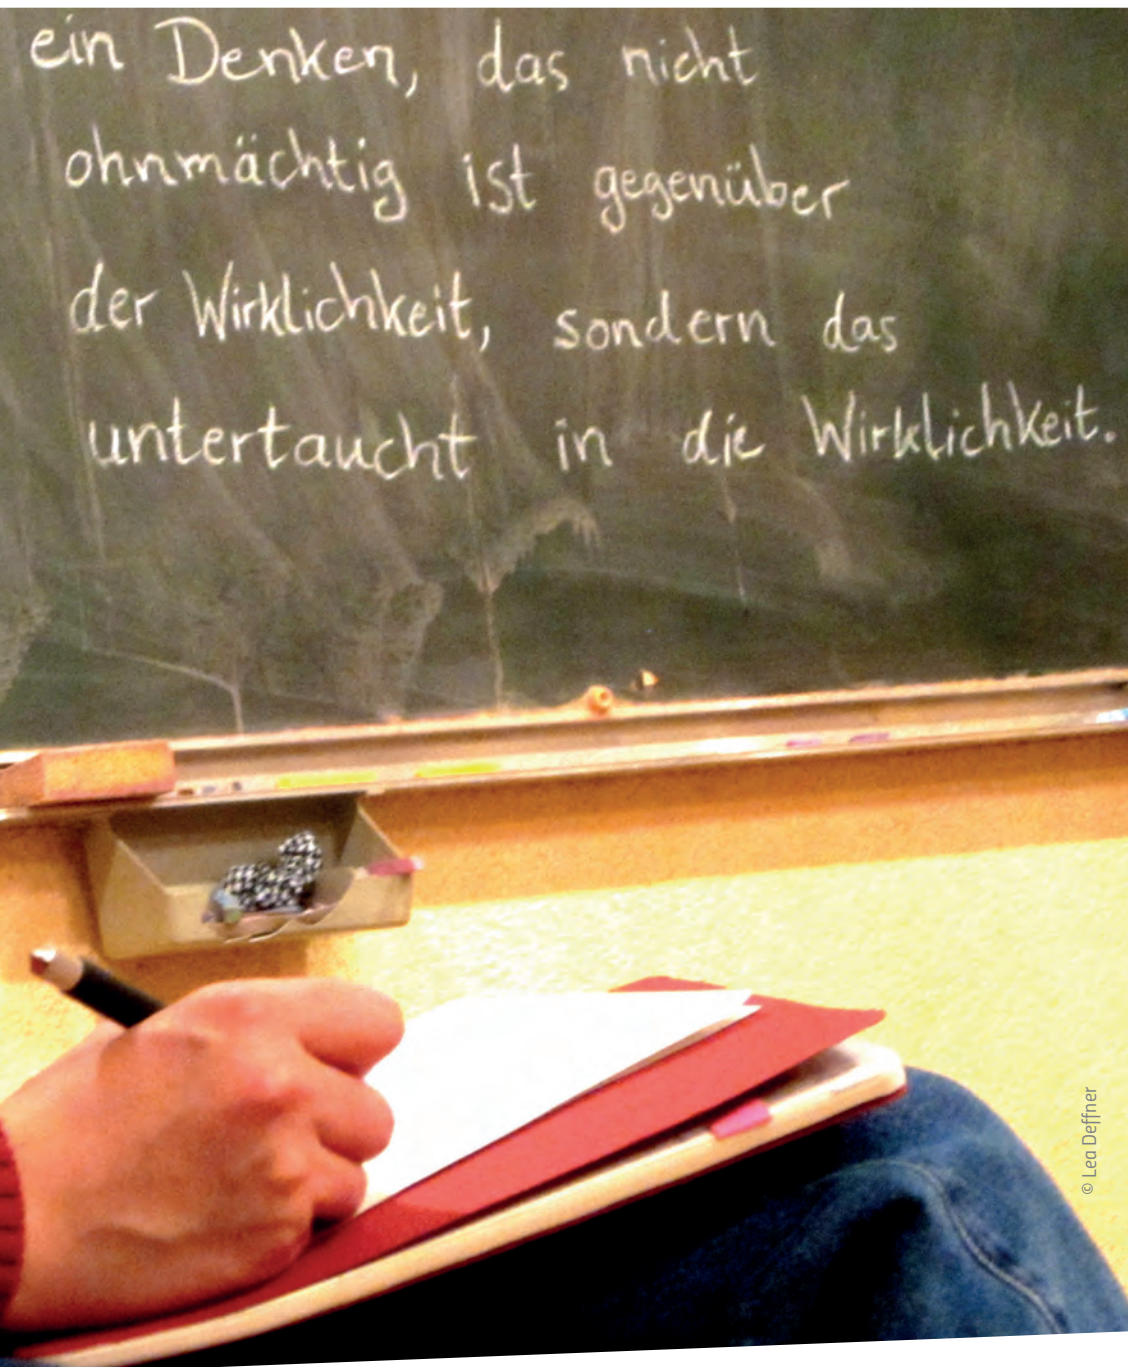 ein Denken, das nicht
ohnmächtig ist gegenüber
der Wirklichkeit, sondern das
untertaucht in die Wirklichkeit.
© Lea Deffner